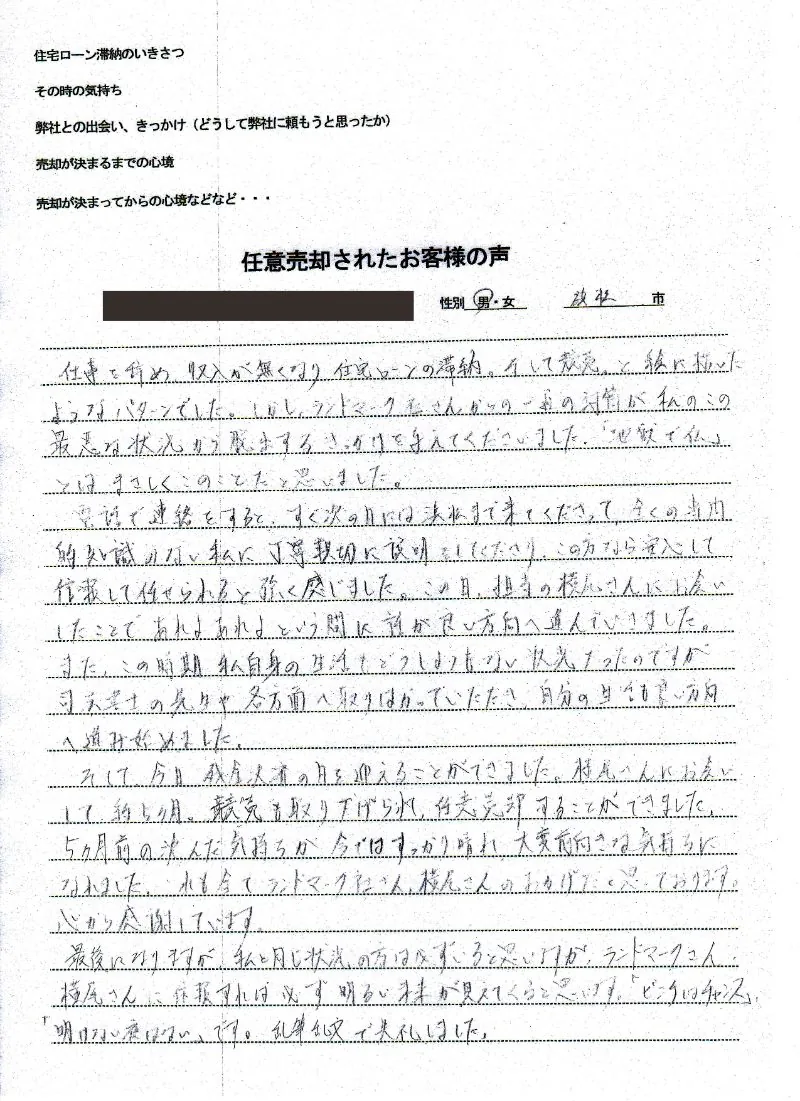 住宅ローン滞納のいきさつ
その時の気持ち
弊社との出会い、きっかけ（どうして弊社に頼もうと思ったか）
売却が決まるまでの心境
売却が決まってからの心境などなど・・・
任意売却されたお客様の声
性別 男・女 浜松 市
仕事を辞め、収入が無くなり住宅ローンの滞納。そして競売。と絵に描いた
ようなパターンでした。しかし、ランドマーク社さんからの一通の封筒が私のこの
最悪な状況から脱出するきっかけを与えてくださいました。「地獄で仏」
とはまさしくこのことだと思いました。
電話で連絡をすると、すぐ次の日には浜松まで来てくださって、全くの専門
的知識のない私に丁寧親切に説明をしてくださり、この方なら安心して
信頼して任せられると強く感じました。この日、担当の横尾さんにお会い
したことであれよあれよという間に話が良い方向へ進んでいきました。
また、この時期私自身の生活もどうしようもない状況だったのですが
司法書士の先生や各方面へ取りはかっていただき、自分の生活も良い方向
へ進み始めました。
そして、今日残金決済の日を迎えることができました。横尾さんにお会い
して約5ヶ月。競売も取り下げられ、任意売却することができました。
5ヶ月前の沈んだ気持ちが今ではすっかり晴れ、大変前向きな気持ちに
なれました。これも全てランドマーク社さん、横尾さんのおかげだと思っております。
心から感謝しています。
最後になりますが、私と同じ状況の方は必ずいると思いますが、ランドマークさん、
横尾さんに依頼すれば必ず明るい未来が見えてくると思います。「ピンチはチャンス」
「明けない夜はない」です。乱筆乱文で失礼しました。